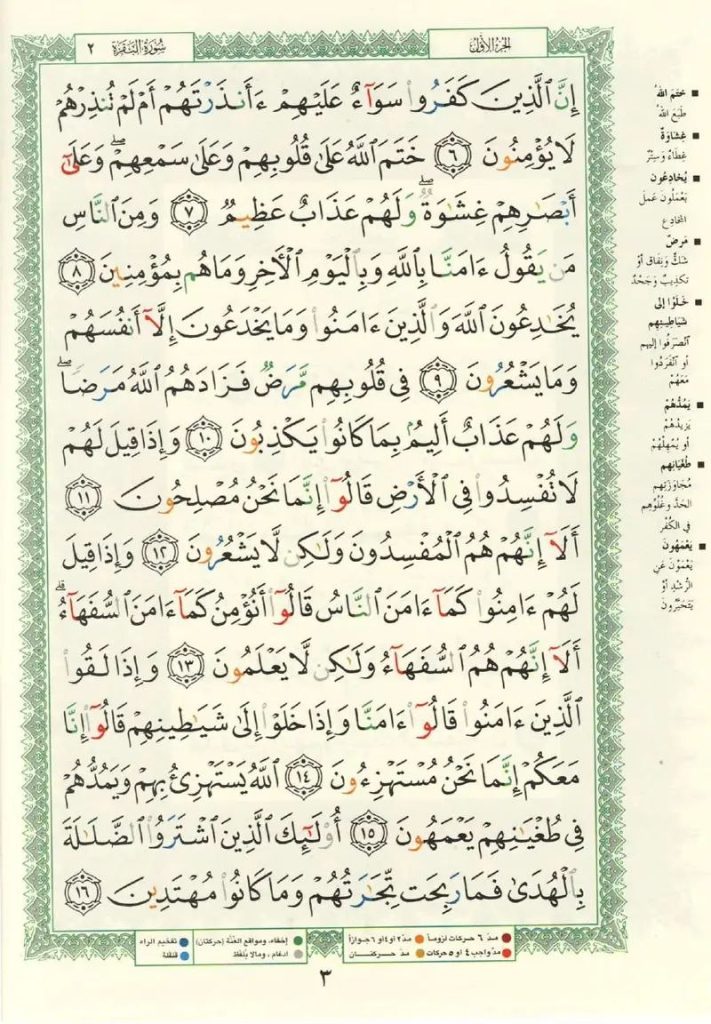 الجزء الأول
سورة البقرة ٢
إِنَّ ٱلَّذِينَ كَفَرُوا۟ سَوَآءٌ عَلَيْهِمْ ءَأَنذَرْتَهُمْ أَمْ لَمْ تُنذِرْهُمْ
لَا يُؤْمِنُونَ ٦ خَتَمَ ٱللَّهُ عَلَىٰ قُلُوبِهِمْ وَعَلَىٰ سَمْعِهِمْ ۖ وَعَلَىٰٓ
أَبْصَٰرِهِمْ غِشَٰوَةٌ ۖ وَلَهُمْ عَذَابٌ عَظِيمٌ ٧ وَمِنَ ٱلنَّاسِ
مَن يَقُولُ ءَامَنَّا بِٱللَّهِ وَبِٱلْيَوْمِ ٱلْءَاخِرِ وَمَا هُم بِمُؤْمِنِينَ ٨
يُخَٰدِعُونَ ٱللَّهَ وَٱلَّذِينَ ءَامَنُوا۟ وَمَا يَخْدَعُونَ إِلَّآ أَنفُسَهُمْ
وَمَا يَشْعُرُونَ ٩ فِى قُلُوبِهِم مَّرَضٌ فَزَادَهُمُ ٱللَّهُ مَرَضًا ۖ
وَلَهُمْ عَذَابٌ أَلِيمٌۢ بِمَا كَانُوا۟ يَكْذِبُونَ ١٠ وَإِذَا قِيلَ لَهُمْ
لَا تُفْسِدُوا۟ فِى ٱلْأَرْضِ قَالُوٓا۟ إِنَّمَا نَحْنُ مُصْلِحُونَ ١١
أَلَآ إِنَّهُمْ هُمُ ٱلْمُفْسِدُونَ وَلَٰكِن لَّا يَشْعُرُونَ ١٢ وَإِذَا قِيلَ
لَهُمْ ءَامِنُوا۟ كَمَآ ءَامَنَ ٱلنَّاسُ قَالُوٓا۟ أَنُؤْمِنُ كَمَآ ءَامَنَ ٱلسُّفَهَآءُ ۗ
أَلَآ إِنَّهُمْ هُمُ ٱلسُّفَهَآءُ وَلَٰكِن لَّا يَعْلَمُونَ ١٣ وَإِذَا لَقُوا۟
ٱلَّذِينَ ءَامَنُوا۟ قَالُوٓا۟ ءَامَنَّا وَإِذَا خَلَوْا۟ إِلَىٰ شَيَٰطِينِهِمْ قَالُوٓا۟ إِنَّا
مَعَكُمْ إِنَّمَا نَحْنُ مُسْتَهْزِءُونَ ١٤ ٱللَّهُ يَسْتَهْزِئُ بِهِمْ وَيَمُدُّهُمْ
فِى طُغْيَٰنِهِمْ يَعْمَهُونَ ١٥ أُو۟لَٰٓئِكَ ٱلَّذِينَ ٱشْتَرَوُا۟ ٱلضَّلَٰلَةَ
بِٱلْهُدَىٰ فَمَا رَبِحَت تِّجَٰرَتُهُمْ وَمَا كَانُوا۟ مُهْتَدِينَ ١٦
■ ختم الله
طبع الله
■ غشاوة
غطاء وستر
■ يخادعون
يعملون عمل
المخادع
■ مرض
شك ونفاق أو
تكذيب وجحد
■ خلوا إلى
شياطينهم
انصرفوا إليهم
أو انفردوا
معهم
■ يمدهم
يزيدهم
أو يمهلهم
■ طغيانهم
مجاوزتهم
الحد وغلوهم
في الكفر
■ يعمهون
يعمون عن
الرشد أو
يتحيرون
مد ٦ حركات لزوماً ● مد ٢ أو ٤ أو ٦ جوازاً
مد واجب ٤ أو ٥ حركات ● مد حركتان
إخفاء، ومواقع الغنة (حركتان)
ادغام، ومالا يلفظ
تفخيم الراء
قلقلة
٣